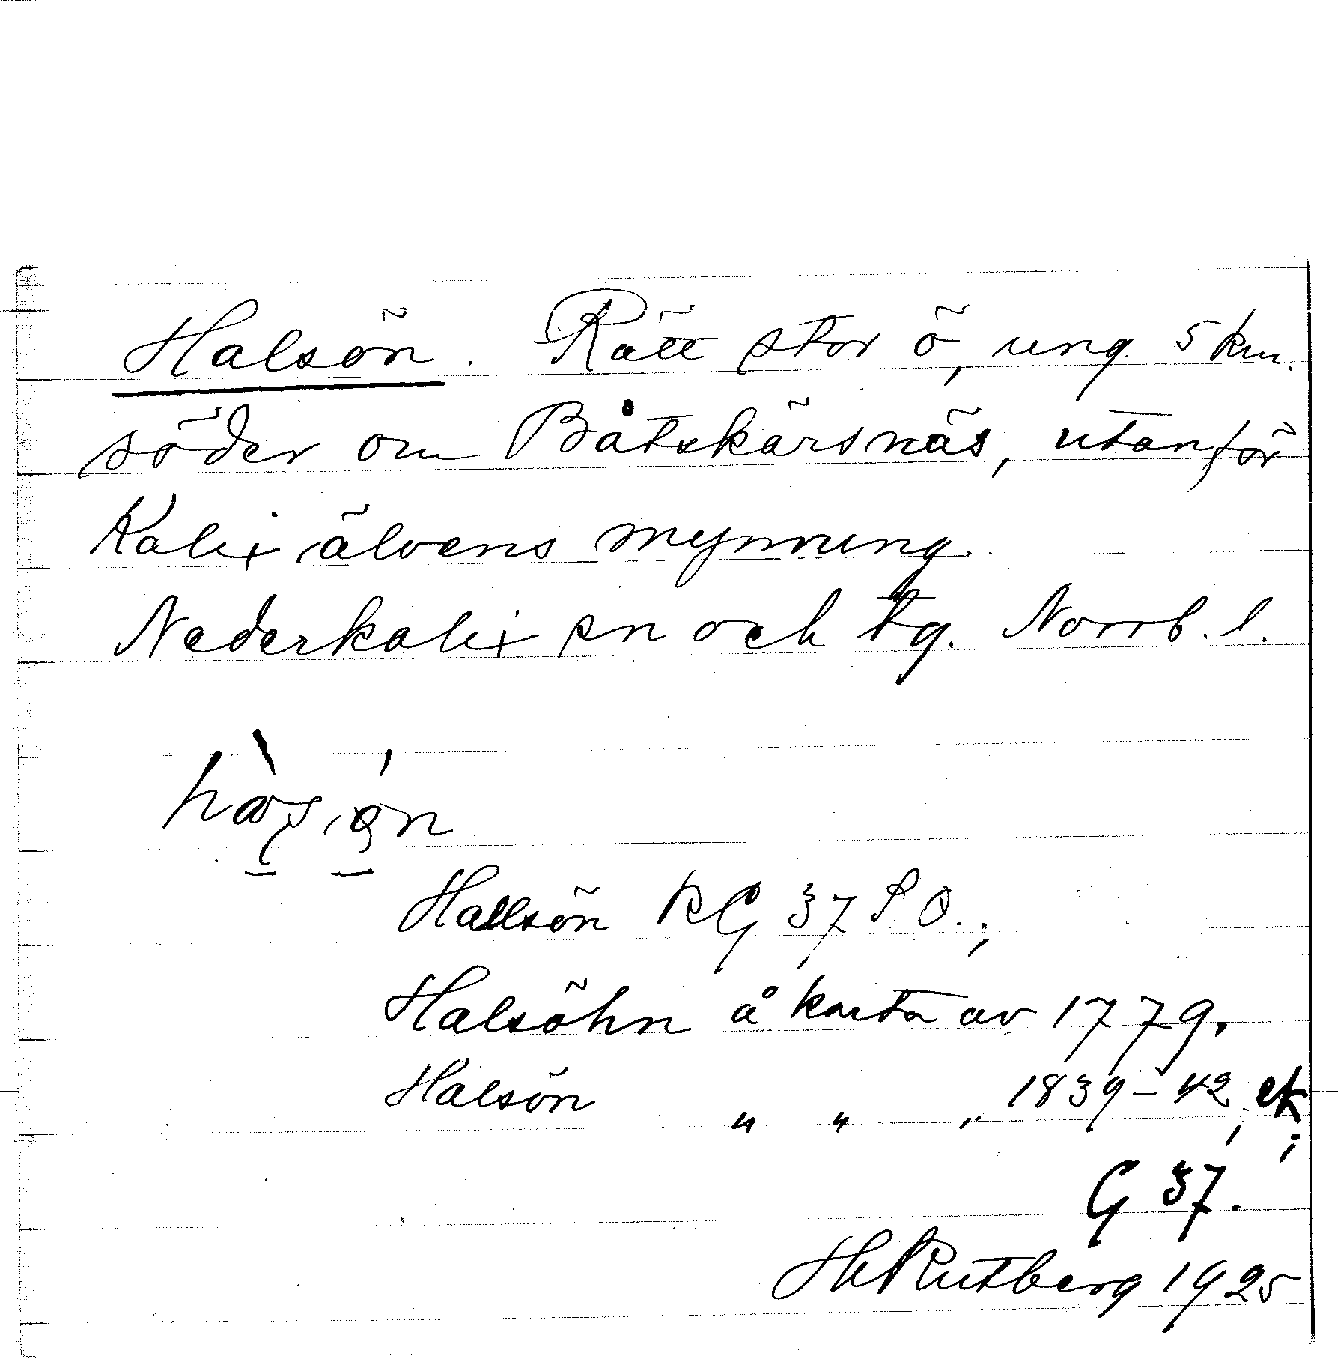 Halsön. Rätt stor ö, ung. 5 km.
söder om Båtskärsnäs, utanför
Kalix älvens mynning.
Nederkalix sn och tg. Norrb. l.
Hallsön RG 37 SO.;
Halsöhn å karta av 1779.
Halsön " " " 1839–42, ek;
G 37.
H Rutberg 1925